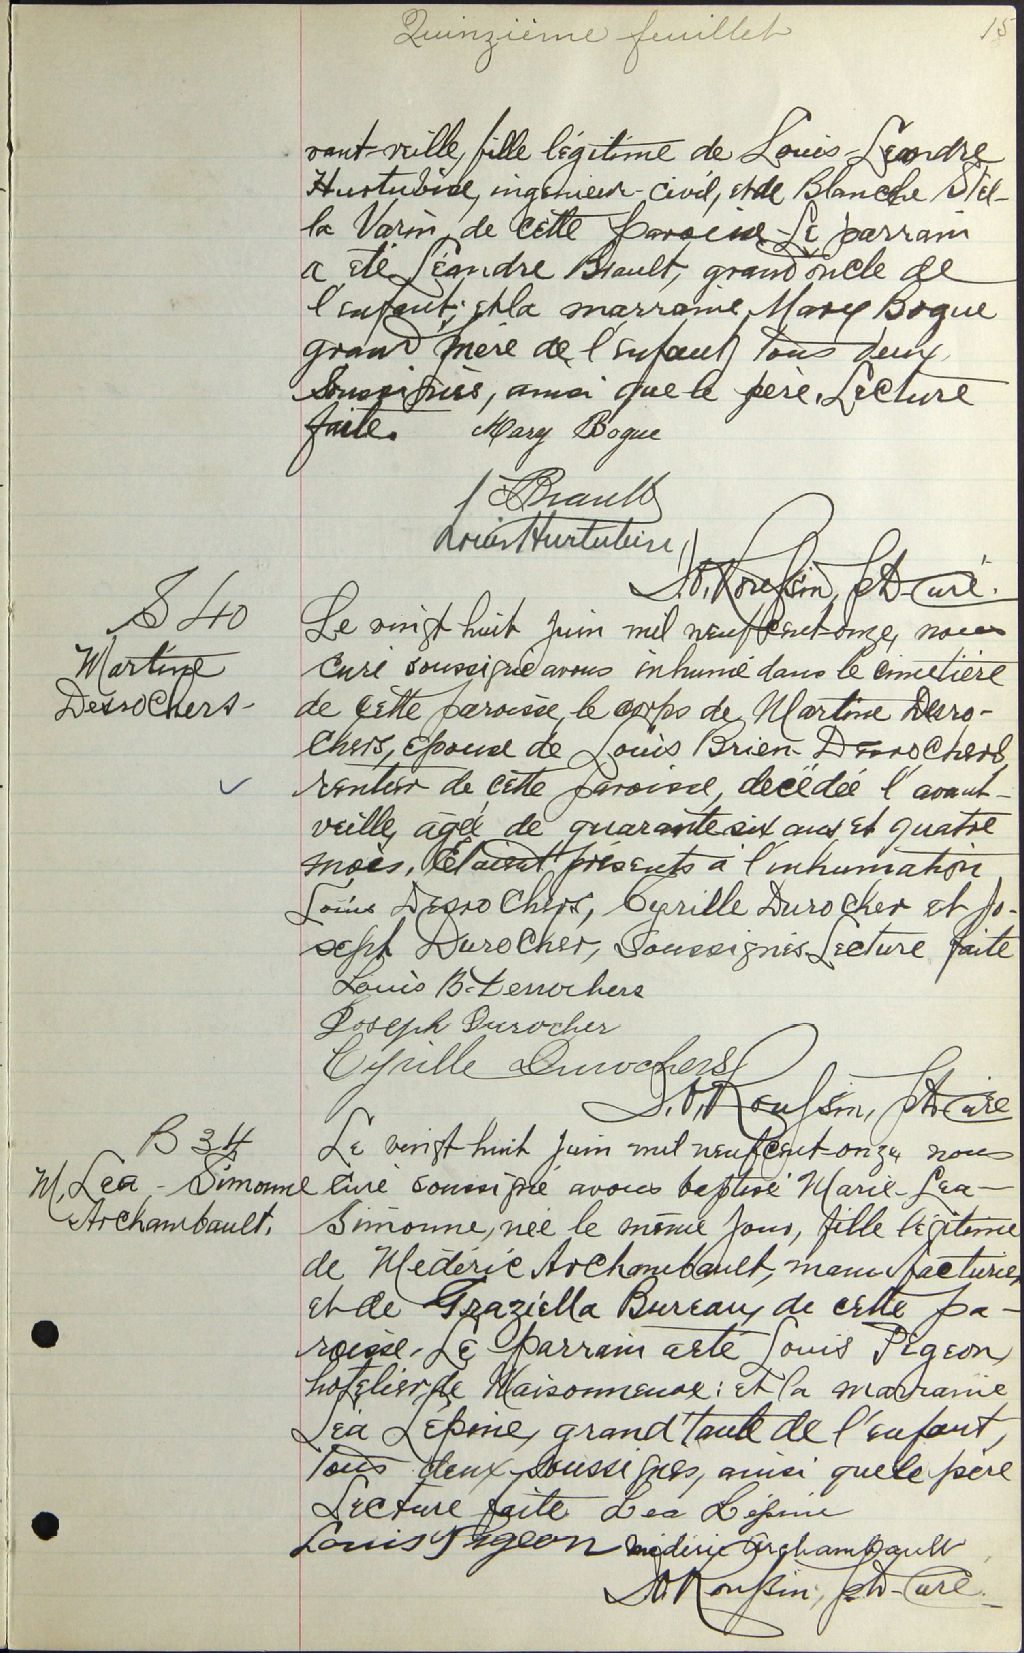 Quinzième feuillet
15
vant-veille, fille légitime de Louis-Léandre
Hurtubise, ingénieur-civil, et de Blanche Stel-
la Varin, de cette paroisse. Le parrain
a été Léandre Brault, grand'oncle de
l'enfant; et la marraine, Mary Bogue
grand'mère de l'enfant, tous deux
soussignés, ainsi que le père. Lecture
faite. Mary Bogue
Brault
Louis Hurtubise
Roussin, Ptr-Curé.
S 40
Martine
Desrochers-
Le vingt huit juin mil neuf cent-onze, nous
curé soussigné avons inhumé dans le cimetière
de cette paroisse, le corps de Martine Desro-
chers, épouse de Louis Brien-Desrochers,
rentier de cette paroisse, décédée l'avant-
veille, agée de quarante six ans et quatre
mois. Etaient présents à l'inhumation
Louis Desrochers, Cyrille Durocher et Jo-
seph Durocher, soussignés. Lecture faite
Louis B. Desrochers
Joseph Durocher
Cyrille Durochers
Roussin, Ptr-Curé
B 34
M. Lea - Simonne
Archambault.
Le vingt huit juin mil neuf cent-onze, nous
curé soussigné avons baptisé Marie-Lea-
Simonne, née le même jour, fille légitime
de Médéric Archambault, manufacturier,
et de Graziella Bureau, de cette pa-
roisse. Le parrain a été Louis Pigeon,
hotelier, de Maisonneuve: et la marraine
Léa Lépine, grand'tante de l'enfant,
tous deux soussignés, ainsi que le père
Lecture faite Lea Lépine
Louis Pigeon Médéric Archambault
Roussin, Ptr-Curé.